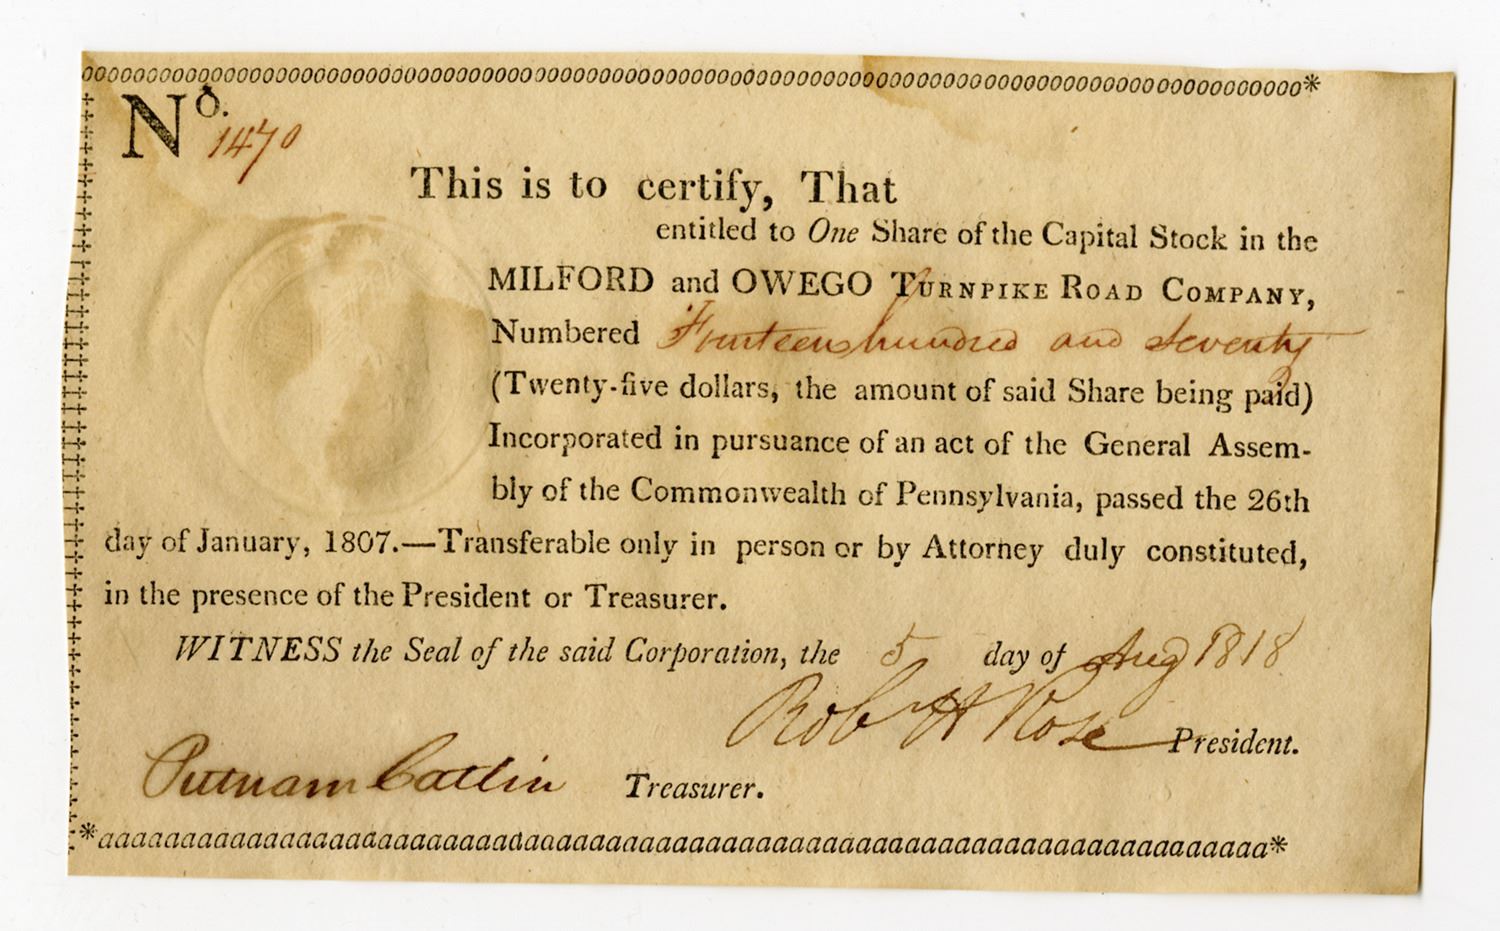 oooooooooooooooooooooooooooooooooooooooooooooooooooooooooooooooooooooooooooooooooooooooooooooo*
No. 1470
This is to certify, That
entitled to One Share of the Capital Stock in the
MILFORD and OWEGO TURNPIKE ROAD COMPANY,
Numbered Fourteen hundred and seventy
(Twenty-five dollars, the amount of said Share being paid)
Incorporated in pursuance of an act of the General Assem-
bly of the Commonwealth of Pennsylvania, passed the 26th
day of January, 1807.—Transferable only in person or by Attorney duly constituted,
in the presence of the President or Treasurer.
WITNESS the Seal of the said Corporation, the 5 day of Aug 1818
Rob H Rose President.
Putnam Catlin Treasurer.
*aaaaaaaaaaaaaaaaaaaaaaaaaaaaaaaaaaaaaaaaaaaaaaaaaaaaaaaaaaaaaaaaaaaaaa*